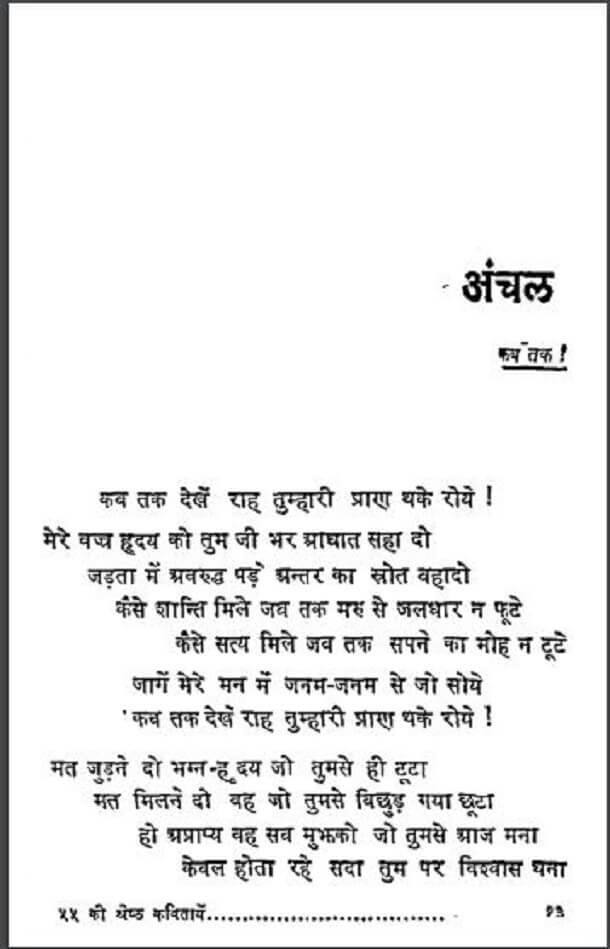 अंचल
कब तक !
कब तक देखें राह तुम्हारी प्राण थके रोये !
मेरे वज्र हृदय को तुम जी भर आघात सहा दो
जड़ता में अवरुद्ध पड़े अन्तर का स्रोत बहादो
कैसे शान्ति मिले जब तक मरु से जलधार न फूटे
कैसे सत्य मिले जब तक सपने का मोह न टूटे
जागें मेरे मन में जनम-जनम से जो सोये
कब तक देखें राह तुम्हारी प्राण थके रोये !
मत जुड़ने दो भग्न-हृदय जो तुमसे ही टूटा
मत मिलने दो वह जो तुमसे बिछुड़ गया छूटा
हो अप्राप्य वह सब मुझको जो तुमसे आज मना
केवल होता रहे सदा तुम पर विश्वास घना
५५ की श्रेष्ठ कवितायें.................................. १३